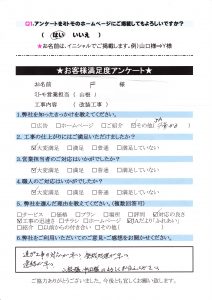 Q1.アンケートをミトモのホームページにご掲載してもよろしいですか？
（ はい いいえ ）
★お名前は、イニシャルでご掲載します。例）山口様⇒Y様
★お客様満足度アンケート★
お名前 戸 様
ミトモ営業担当（ 山根 ）
工事内容 （ 改装工事 ）
1.弊社を知ったきっかけを教えてください。
□広告 □ホームページ □ご紹介 ☑その他（ ）
2.工事の仕上がりにはご満足いただけましたか？
☑大変満足 □満足 □普通 □満足していない
3.営業担当者のご対応はいかがでしたか？
☑大変満足 □満足 □普通 □満足していない
4.職人のご対応はいかがでしたか？
☑大変満足 □満足 □普通 □満足していない
5.弊社を選んだ理由を教えてください。（複数回答可）
□サービス □価格 □プラン □場所 □評判 ☑対応の良さ
☑工事の迅速さ □チラシ □ホームページ ☑AIだより（ふれあい）
□紹介 □以前からの付き合い □その他（ ）
6.弊社をご利用いただいてのご意見・ご感想をお聞かせください。
ご協力ありがとうございました。今後とも宜しくお願い致します。